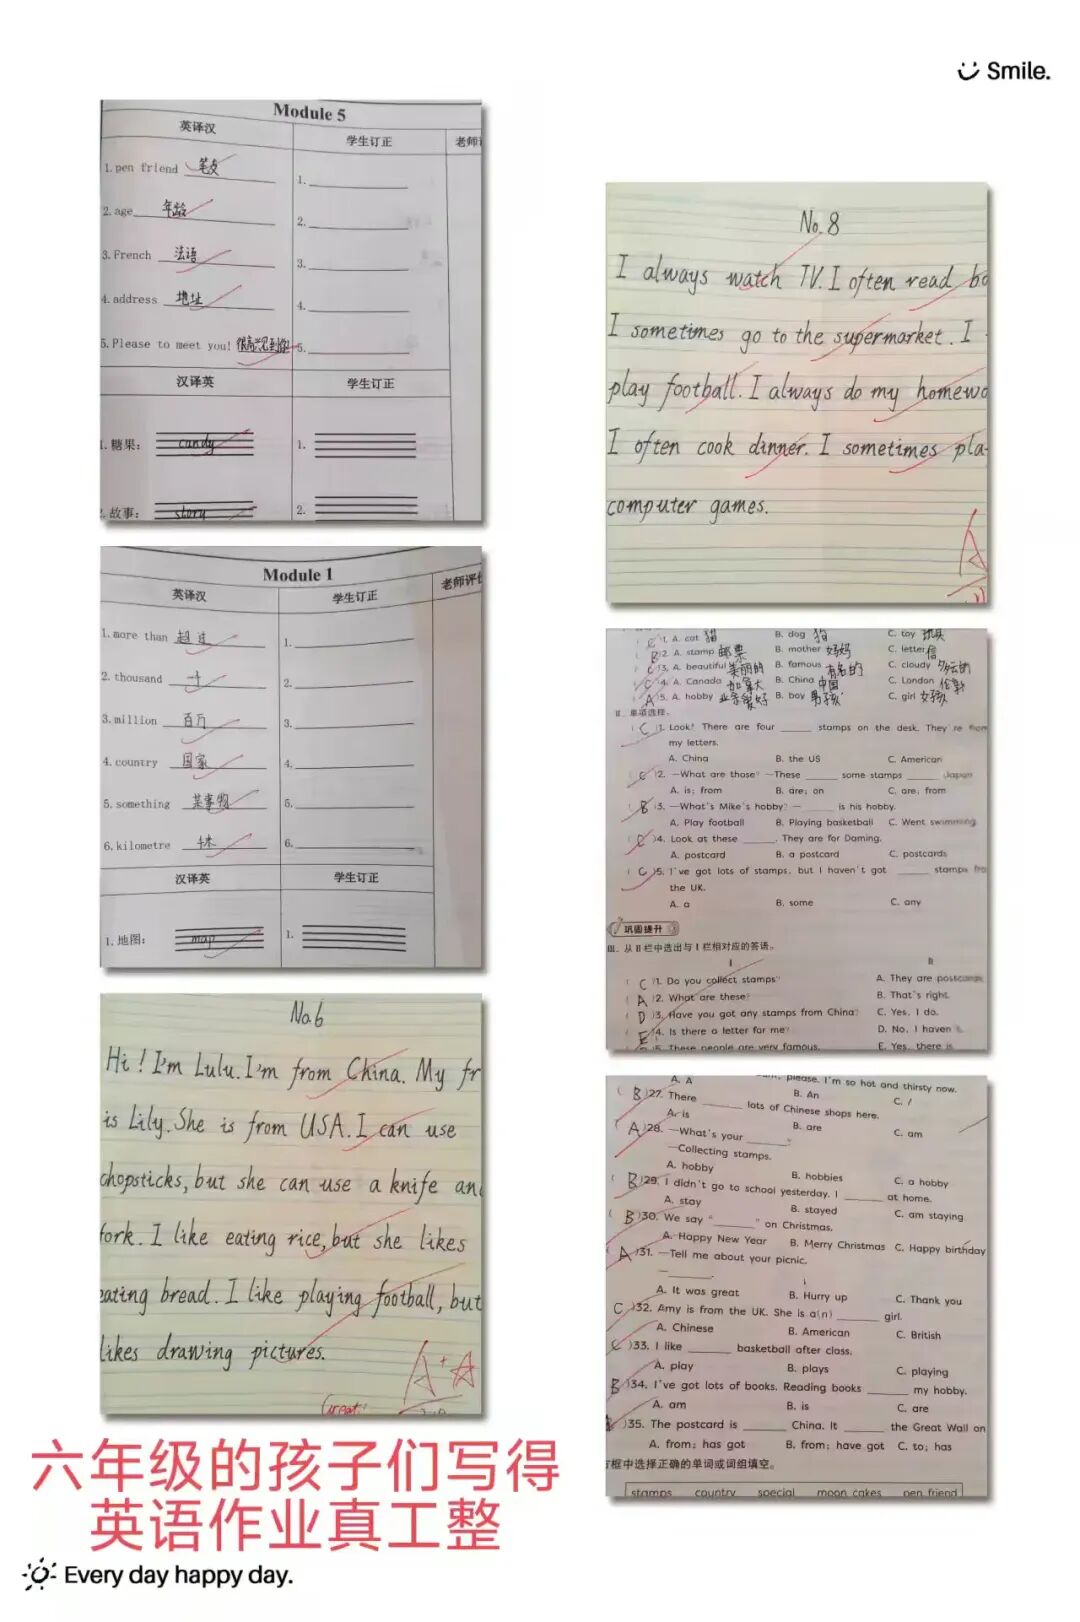 Smile.
Module 5
英译汉
学生订正
老师
1. pen friend 笔友
1.
2. age 年龄
2.
3. French 法语
3.
4. address 地址
4.
5. Please to meet you! 很高兴见到你
5.
汉译英
学生订正
1. 糖果: candy
1.
2. 故事: story
2.
Module 1
英译汉
学生订正
老师评
1. more than 超过
1.
2. thousand 一千
2.
3. million 百万
3.
4. country 国家
4.
5. something 某事物
5.
6. kilometre 千米
6.
汉译英
学生订正
1. 地图: map
1.
No.6
Hi! I'm Lulu. I'm from China. My fr
is Lily. She is from USA. I can use
chopsticks, but she can use a knife an
fork. I like eating rice, but she likes
eating bread. I like playing football, but
likes drawing pictures.
A+
Great!
No. 8
I always watch TV. I often read bo
I sometimes go to the supermarket. I
play football. I always do my homewo
I often cook dinner. I sometimes pla
computer games.
A
( C )1. A. cat 猫 B. dog 狗 C. toy 玩具
( B )2. A. stamp 邮票 B. mother 妈妈 C. letter 信
( C )3. A. beautiful 美丽的 B. famous 有名的 C. cloudy 多云的
( C )4. A. Canada 加拿大 B. China 中国 C. London 伦敦
( A )5. A. hobby 业余爱好 B. boy 男孩 C. girl 女孩
II. 单项选择。
( C )1. Look! There are four ______ stamps on the desk. They're from
my letters.
A. China B. the US C. American
( C )2. —What are those? —These ______ some stamps ______ Japan
A. is; from B. are; on C. are; from
( B )3. —What's Mike's hobby? — ______ is his hobby.
A. Play football B. Playing basketball C. Went swimming
( C )4. Look at these ______. They are for Daming.
A. postcard B. a postcard C. postcards
( C )5. I've got lots of stamps, but I haven't got ______ stamps fro
the UK.
A. a B. some C. any
巩固提升
III. 从 II 栏中选出与 I 栏相对应的答语。
I II
( C )1. Do you collect stamps? A. They are postcards.
( A )2. What are these? B. That's right.
( D )3. Have you got any stamps from China? C. Yes, I do.
( E )4. Is there a letter for me? D. No, I haven
5. These people are very famous. E. Yes, there is
please. I'm so hot and thirsty now.
A. A B. An C. /
( B )27. There ______ lots of Chinese shops here.
A. is B. are C. am
( A )28. —What's your ______?
—Collecting stamps.
A. hobby B. hobbies C. a hobby
( B )29. I didn't go to school yesterday. I ______ at home.
A. stay B. stayed C. am staying
( B )30. We say "______" on Christmas.
A. Happy New Year B. Merry Christmas C. Happy birthday
( A )31. —Tell me about your picnic.
—______.
A. It was great B. Hurry up C. Thank you
C )32. Amy is from the UK. She is a(n) ______ girl.
A. Chinese B. American C. British
C )33. I like ______ basketball after class.
A. play B. plays C. playing
B )34. I've got lots of books. Reading books ______ my hobby.
A. am B. is C. are
)35. The postcard is ______ China. It ______ the Great Wall on
A. from; has got B. from; have got C. to; has
框中选择正确的单词或词组填空。
stamps country special moon cakes pen friend
六年级的孩子们写得
英语作业真工整
Every day happy day.